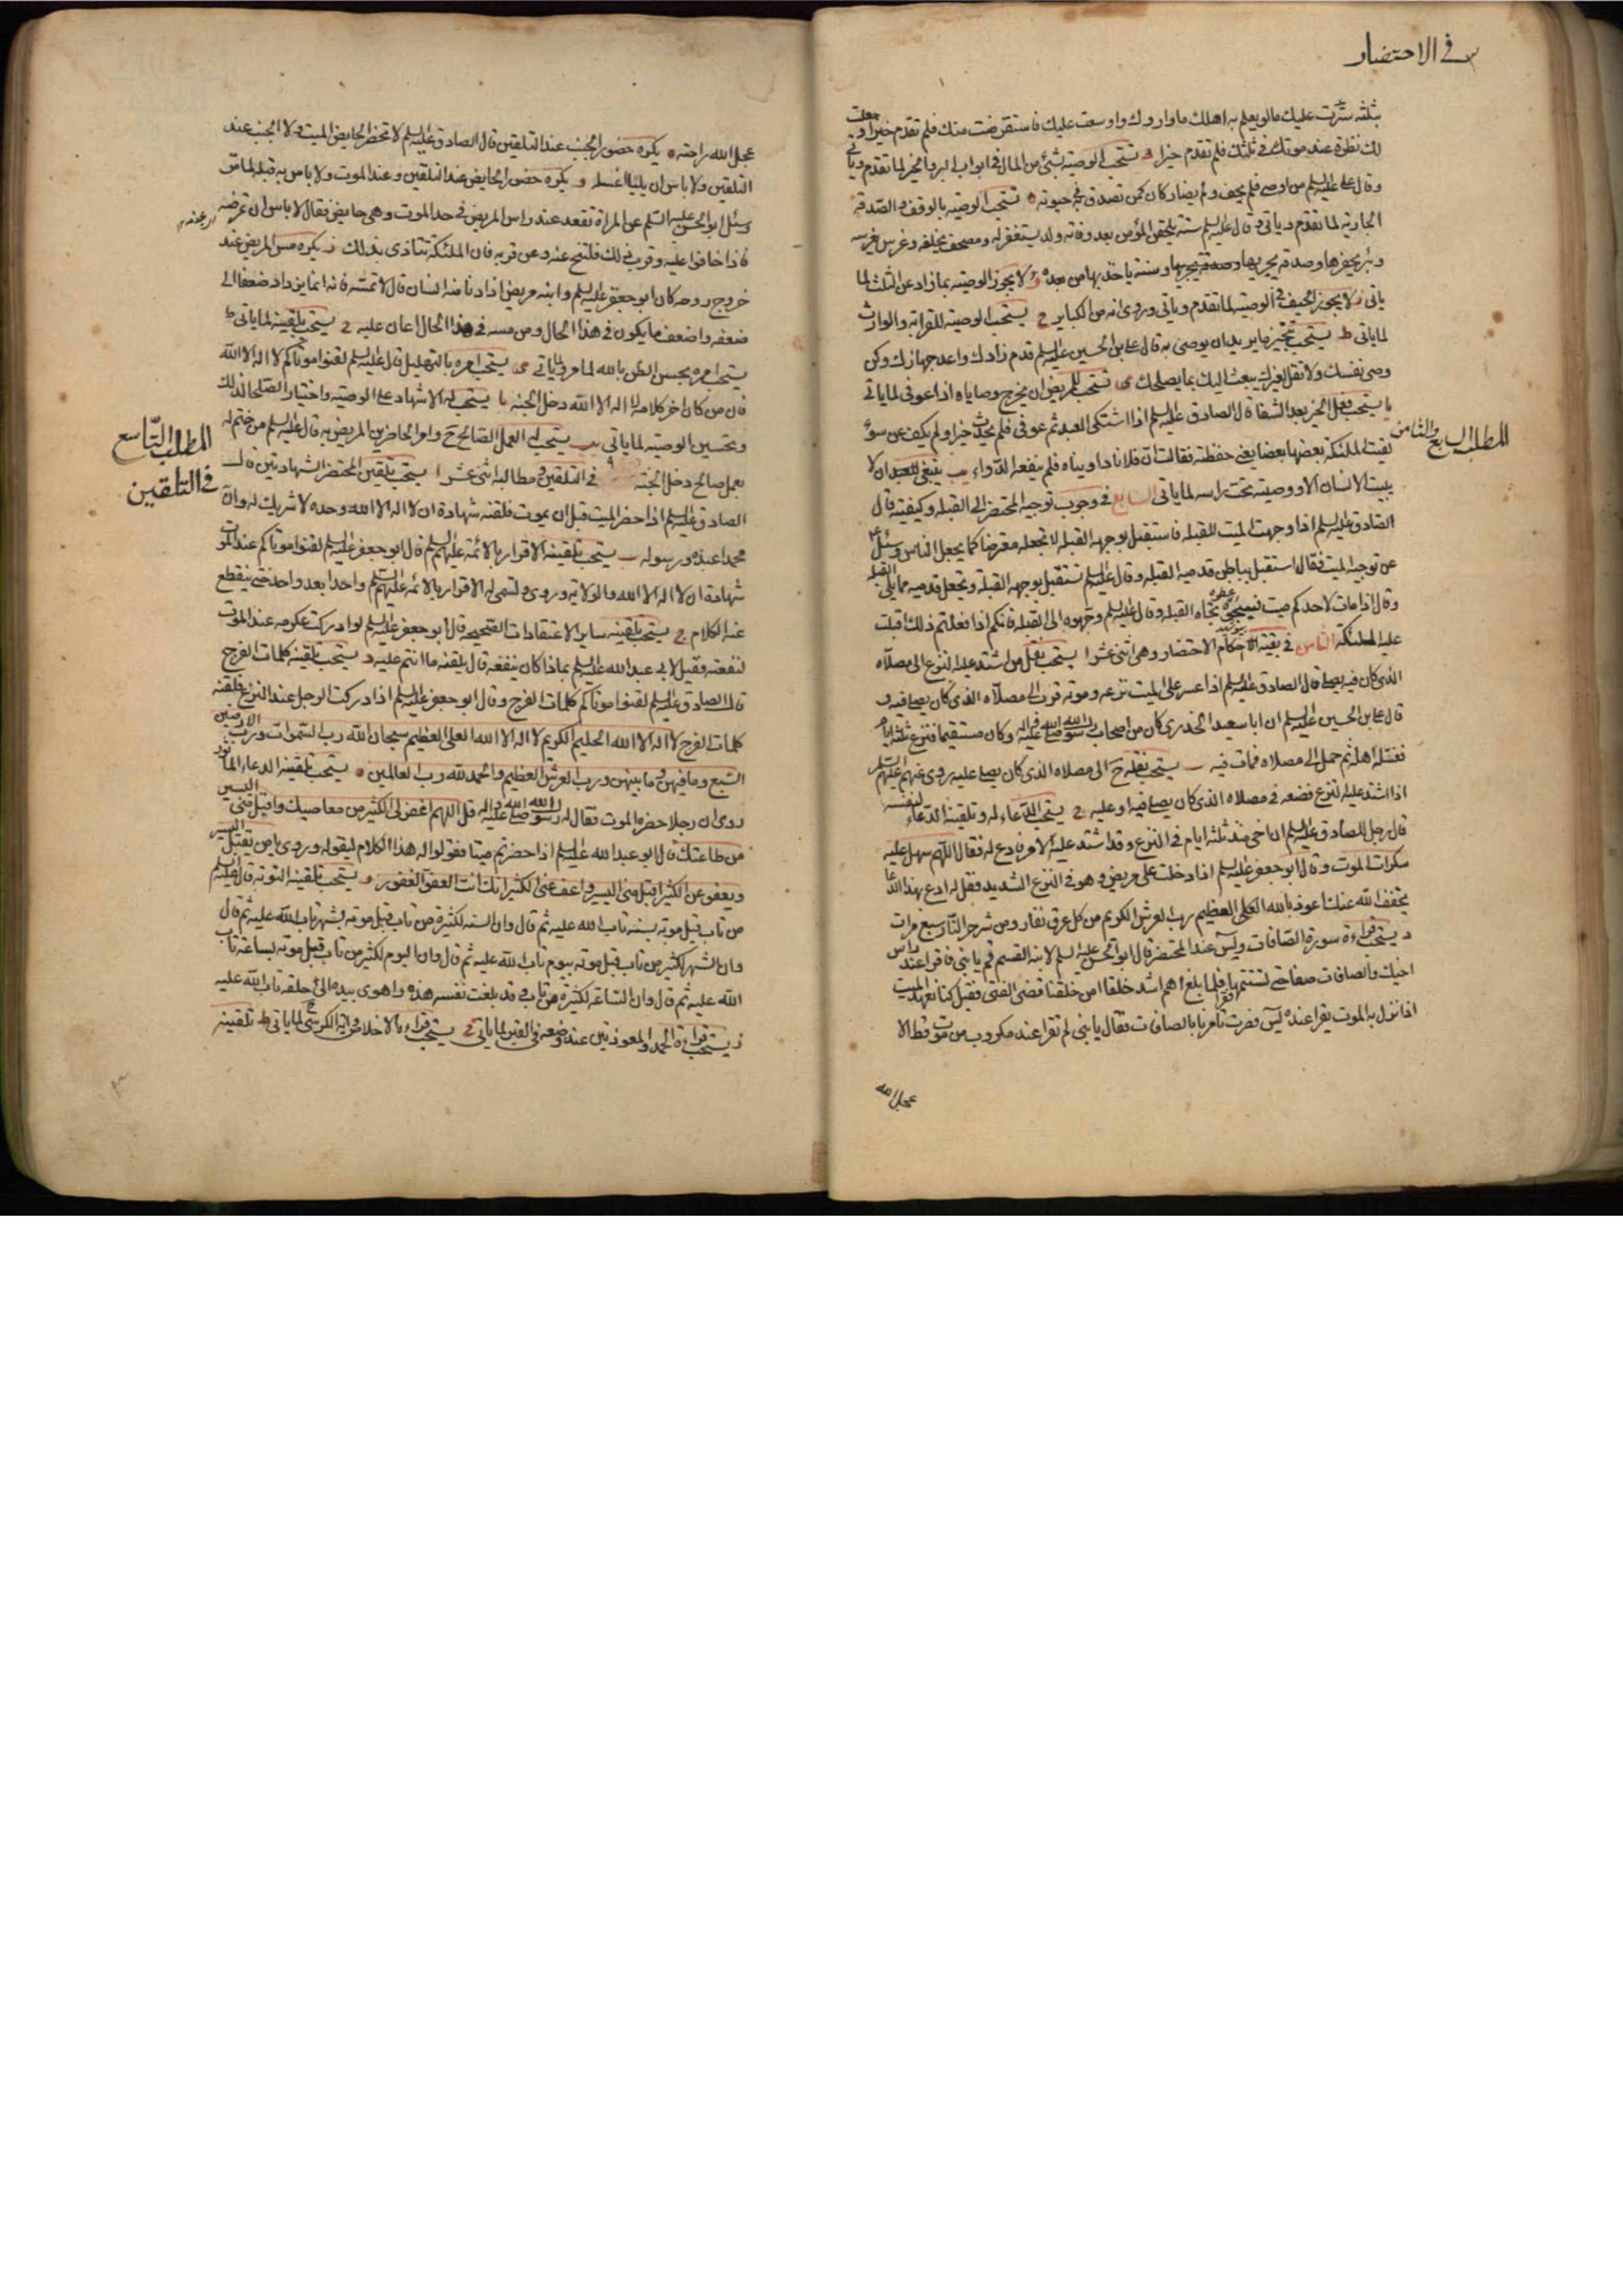 في الاحتضار
بثلثة سترت عليك ما لو يعلم به اهلك ما واروك واوسعت عليك فاستقرضت منك فلم تقدم خيرا وجعلت
لك نظرة عند موتك في ثلثك فلم تقدم خيرا و تستحب الوصية بشئ من المال في ابواب البر والخير لما تقدم وياتي
وقال علي عليه السلم من اوصى فلم يحف ولم يضار كان كمن تصدق به في حيوته ه تستحب الوصية بالوقف والصدقة
الجارية لما تقدم وياتي وقال عليه السلم ستة يلحقن المؤمن بعد وفاته ولد يستغفر له ومصحف يخلفه وغرس يغرسه
وبئر يحفرها وصدقة يجريها وسنة ياخذ بها من بعده و لا يجوز الوصية بما زاد عن الثلث لما
ياتي ز لا يجوز الحيف في الوصية لما تقدم وياتي وروى انه من الكباير ح يستحب الوصية للقرابة والوارث
لما ياتي ط يستحب تنجيز ما يريد ان يوصي به قال علي بن الحسين عليه السلم قدم زادك واعد جهازك وكن
وصي نفسك ولا تقل لغيرك يبعث اليك بما يصلحك ى تستحب للمريض ان يخرج وصاياه اذا عوفي لما ياتي
يا يستحب فعل الخير بعد الشفا قال الصادق عليه السلم اذا اشتكى العبد ثم عوفي فلم يحدث خيرا ولم يكف عن سوء
المطلب السابع والثامن
لقيت الملئكة بعضها بعضا يعني حفظته فقالت ان فلانا داويناه فلم ينفعه الدواء يب ينبغي للعبد ان لا
يبيت الانسان الا ووصيته تحت راسه لما ياتي السابع في وجوب توجيه المحتضر الى القبلة وكيفيته قال
الصادق عليه السلم اذا وجهت الميت للقبلة فاستقبل بوجهه القبلة لا تجعله معترضا كما يجعل الناس وسئل ع
عن توجيه الميت فقال استقبل بباطن قدميه القبلة وقال عليه السلم تستقبل بوجهه القبلة وتجعل قدميه مما يلي القبلة
وقال اذا مات لاحدكم ميت فسجوه تجاه القبلة وقال عليه السلم وجهوه الى القبلة فانكم اذا فعلتم ذلك اقبلت
عليه الملئكة الثامن في بقية احكام الاحتضار وهي اثنى عشر ا يستحب نقل من اشتد عليه النزع الى مصلاه
الذي كان فيه يصلي قال الصادق عليه السلم اذا عسر على الميت نزعه وموته قرب الى مصلاه الذي كان يصلي فيه و
قال علي بن الحسين عليه السلم ان ابا سعيد الخدري كان من اصحاب رسول الله صلى الله عليه واله وكان مستقيما فنزع ثلثة ايام
فغسله اهله ثم حمل الى مصلاه فمات فيه ب يستحب نقله ح الى مصلاه الذي كان يصلي عليه روى عنهم عليهم السلم
اذا اشتد عليه النزع فضعه في مصلاه الذي كان يصلي فيه او عليه ج يستحب الدعاء له وتلقينه الدعاء لنفسه
قال رجل للصادق عليه السلم ان اخي منذ ثلثة ايام في النزع وقد اشتد عليه الامر فادع له فقال اللهم سهل عليه
سكرات الموت وقال ابو جعفر عليه السلم اذا دخلت على مريض وهو في النزع الشديد فقل له ادع بهذا الدعا
يخفف الله عنك اعوذ بالله العلي العظيم رب العرش الكريم من كل عرق نفار ومن شر حر النار سبع مرات
د يستحب قراءة سورة الصافات ويس عند المحتضر قال ابو الحسن عليه السلم لابنه القسم قم يا بني فاقرا عند راس
اخيك والصافات صفا حتى تستتمها فقرا فلما بلغ اهم اشد خلقا ام من خلقنا قضى الفتى فقيل كنا نعهد الميت
اذا نزل به الموت يقرا عنده يس فصرت تامرنا بالصافات فقال يا بني لم تقرا عند مكروب من موت قط الا
عجل الله
عجل الله راحته ه يكره حضور الجنب عند التلقين قال الصادق عليه السلم لا تحضر الحايض الميت ولا الجنب عند
التلقين ولا باس ان يليا غسله و يكره حضور الحايض عند التلقين وعند الموت ولا باس به قبله لما مر
وسئل ابو الحسن عليه السلم عن المراة تقعد عند راس المريض في حد الموت وهي حايض فقال لا باس ان تمرضه
فاذا خافوا عليه وقرب ذلك فلتنح عنه وعن قربه فان الملئكة تتاذى بذلك ز يكره مس المريض عند
خروج روحه كان ابو جعفر عليه السلم وابنه مريض اذا دنا منه انسان قال لا تمسه فانه انما يزداد ضعفا الى
ضعفه واضعف ما يكون في هذا الحال ومن مسه في هذا الحال اعان عليه ح يستحب تلقينه لما ياتي ط
يستحب امره بحسن الظن بالله لما مر وياتي ى يستحب امره بالتهليل قال عليه السلم لقنوا موتاكم لا اله الا الله
فان من كان اخر كلامه لا اله الا الله دخل الجنة يا يستحب له الاشهاد على الوصية واختيار الصلحا لذلك
وتحسين الوصية لما ياتي يب يستحب له العمل الصالح ح وامر الحاضرين المريض به قال عليه السلم من ختم له
المطلب التاسع
في التلقين
بعمل صالح دخل الجنة في التلقين ومطالبه اثنى عشر ا يستحب تلقين المحتضر الشهادتين قال
الصادق عليه السلم اذا حضر الميت قبل ان يموت فلقنه شهادة ان لا اله الا الله وحده لا شريك له وان
محمدا عبده ورسوله ب يستحب تلقينه الاقرار بالائمة عليهم السلم قال ابو جعفر عليه السلم لقنوا موتاكم عند الموت
شهادة ان لا اله الا الله والولاية وروى وتسمي له الاقرار بالائمة عليهم السلم واحدا بعد واحد حتى ينقطع
عنه الكلام ج يستحب تلقينه ساير الاعتقادات الصحيحة قال ابو جعفر عليه السلم لو ادركت عكرمة عند الموت
لنفعته فقيل لابي عبد الله عليه السلم بماذا كان ينفعه قال يلقنه ما انتم عليه د يستحب تلقينه كلمات الفرج
قال الصادق عليه السلم لقنوا موتاكم كلمات الفرج وقال ابو جعفر عليه السلم اذا ادركت الرجل عند النزع فلقنه
كلمات الفرج لا اله الا الله الحليم الكريم لا اله الا الله العلي العظيم سبحان الله رب السموات ورب الارضين
السبع وما فيهن وما بينهن ورب العرش العظيم والحمد لله رب العالمين ه يستحب تلقينه الدعاء الماثور
روى ان رجلا حضره الموت فقال له رسول الله صلى الله عليه واله قل اللهم اغفر لي الكثير من معاصيك واقبل مني اليسير
من طاعتك قال ابو عبد الله عليه السلم اذا حضرتم ميتا فقولوا له هذا الكلام ليقوله وروى يا من يقبل اليسير
ويعفو عن الكثير اقبل مني اليسير واعف عني الكثير انك انت العفو الغفور و يستحب تلقينه التوبة قال عليه السلم
من تاب قبل موته بسنة تاب الله عليه ثم قال وان السنة لكثيرة من تاب قبل موته بشهر تاب الله عليه ثم قال
وان الشهر لكثير من تاب قبل موته بيوم تاب الله عليه ثم قال وان اليوم لكثير من تاب قبل موته بساعة تاب
الله عليه ثم قال وان الساعة لكثيرة من تاب وقد بلغت نفسه هذه واهوى بيده الى حلقه تاب الله عليه
ز يستحب قراءة الحمد والمعوذتين عند وضعه في القبر لما ياتي ح يستحب قراءة الاخلاص واية الكرسي ح لما ياتي ط تلقينه